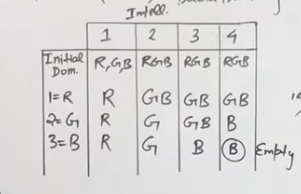 Intell.
1 2 3 4
Initial Dom. R,G,B RGB RGB RGB
1=R R GB GB GB
2=G R G GB B
3=B R G B B Empty